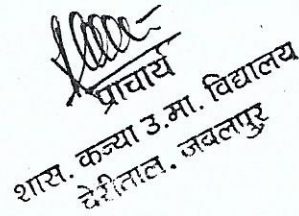 प्राचार्य
शास. कन्या उ.मा. विद्यालय
घेरीताल. जबलपुर